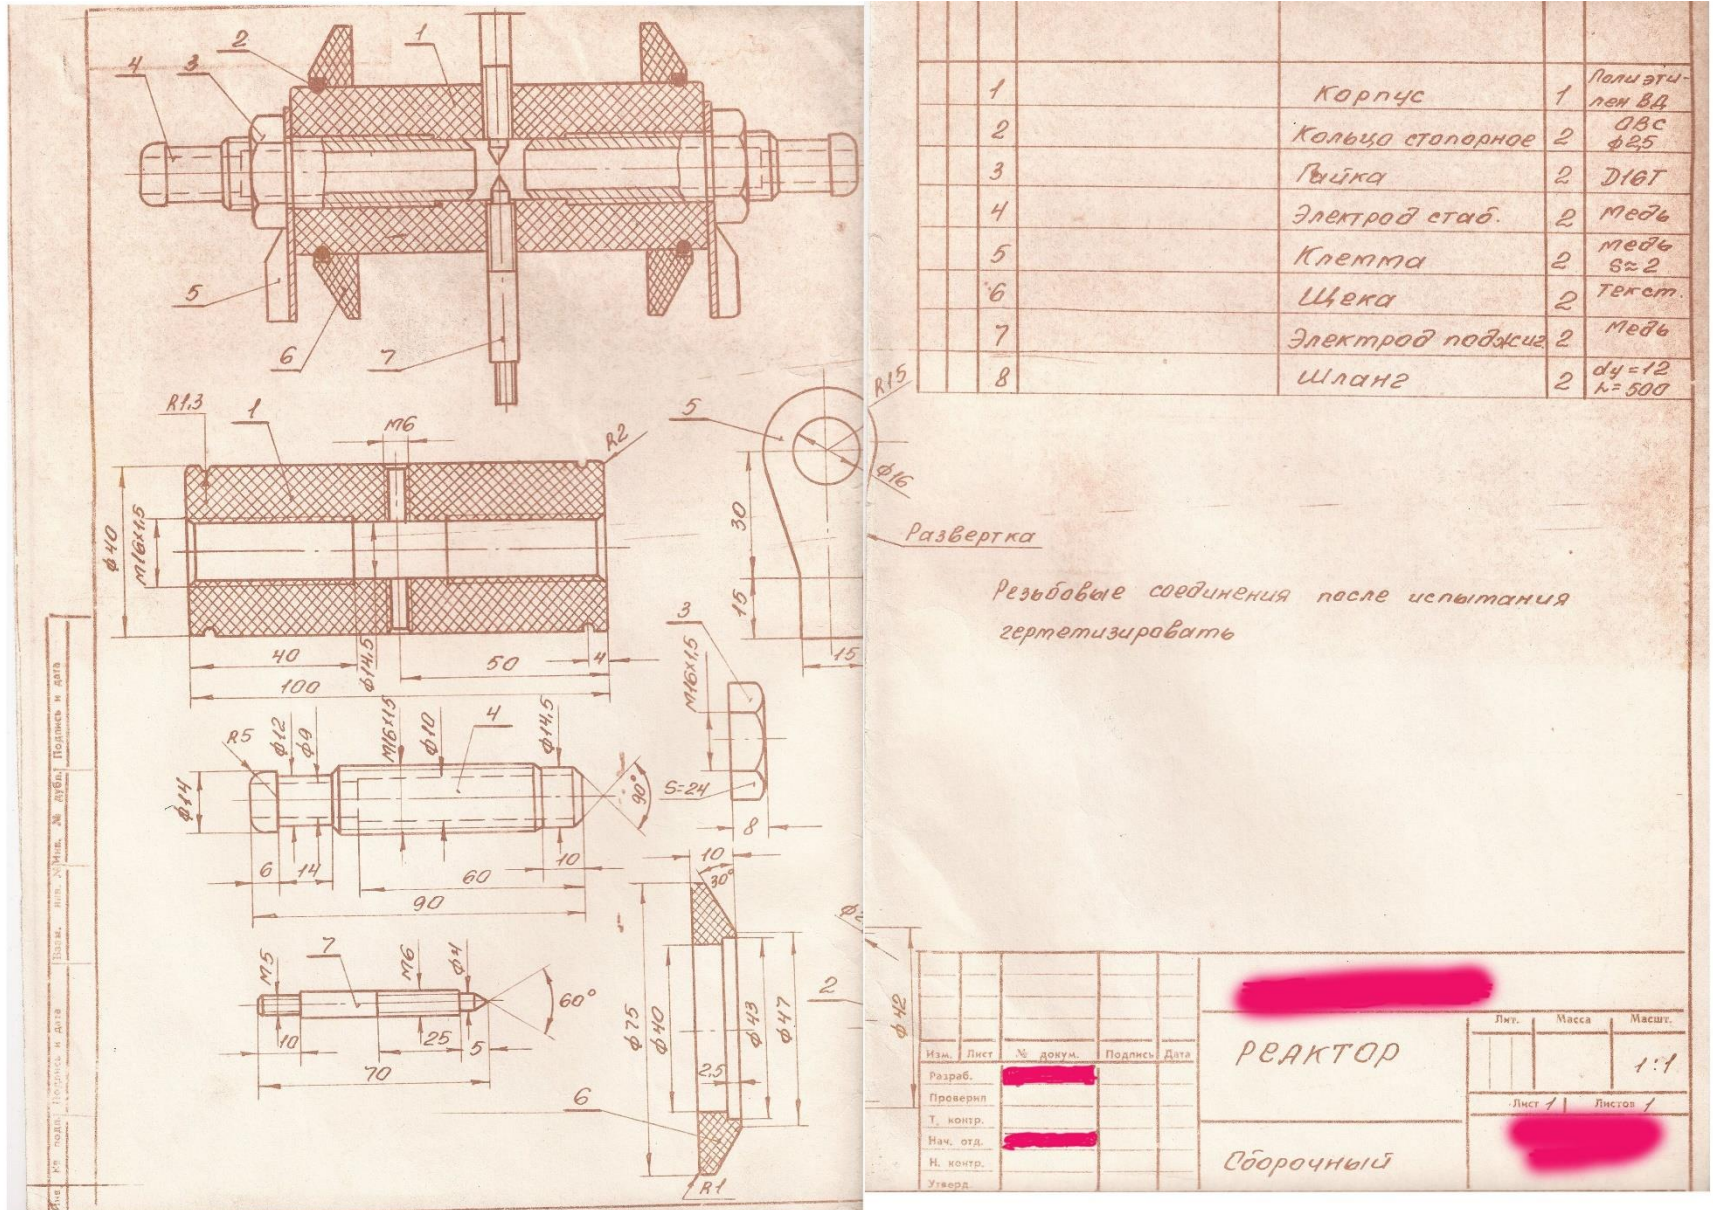 2
1
4
3
5
6
7
R1,3
1
М6
R2
5
R15
ф16
ф40
М16х1,5
30
15
15
40
ф14,5
50
4
100
3
М16х1,5
S=24
8
R5
ф12
ф9
М16х15
ф10
4
ф14,5
90°
ф14
6
14
10
60
90
М5
7
М6
ф4
60°
10
25
5
70
10
30°
ф75
ф40
ф43
ф47
2,5
6
R1
2
ф42
Подпись и дата
Инв. № дубл.
Взам. инв. №
Подпись и дата
Инв. № подл.
1 Корпус 1 Полиэти-
лен ВД
2 Кольцо стопорное 2 ОВС
ф2,5
3 Гайка 2 D16T
4 Электрод стаб. 2 медь
5 Клемма 2 медь
S≈2
6 Щека 2 Текст.
7 Электрод поджиг. 2 медь
8 Шланг 2 dу=12
L=500
Развертка
Резьбовые соединения после испытания
герметизировать
Изм. Лист № докум. Подпись Дата
Разраб.
Проверил
Т. контр.
Нач. отд.
Н. контр.
Утверд.
РЕАКТОР
Сборочный
Лит. Масса Масшт.
1:1
Лист 1 Листов 1